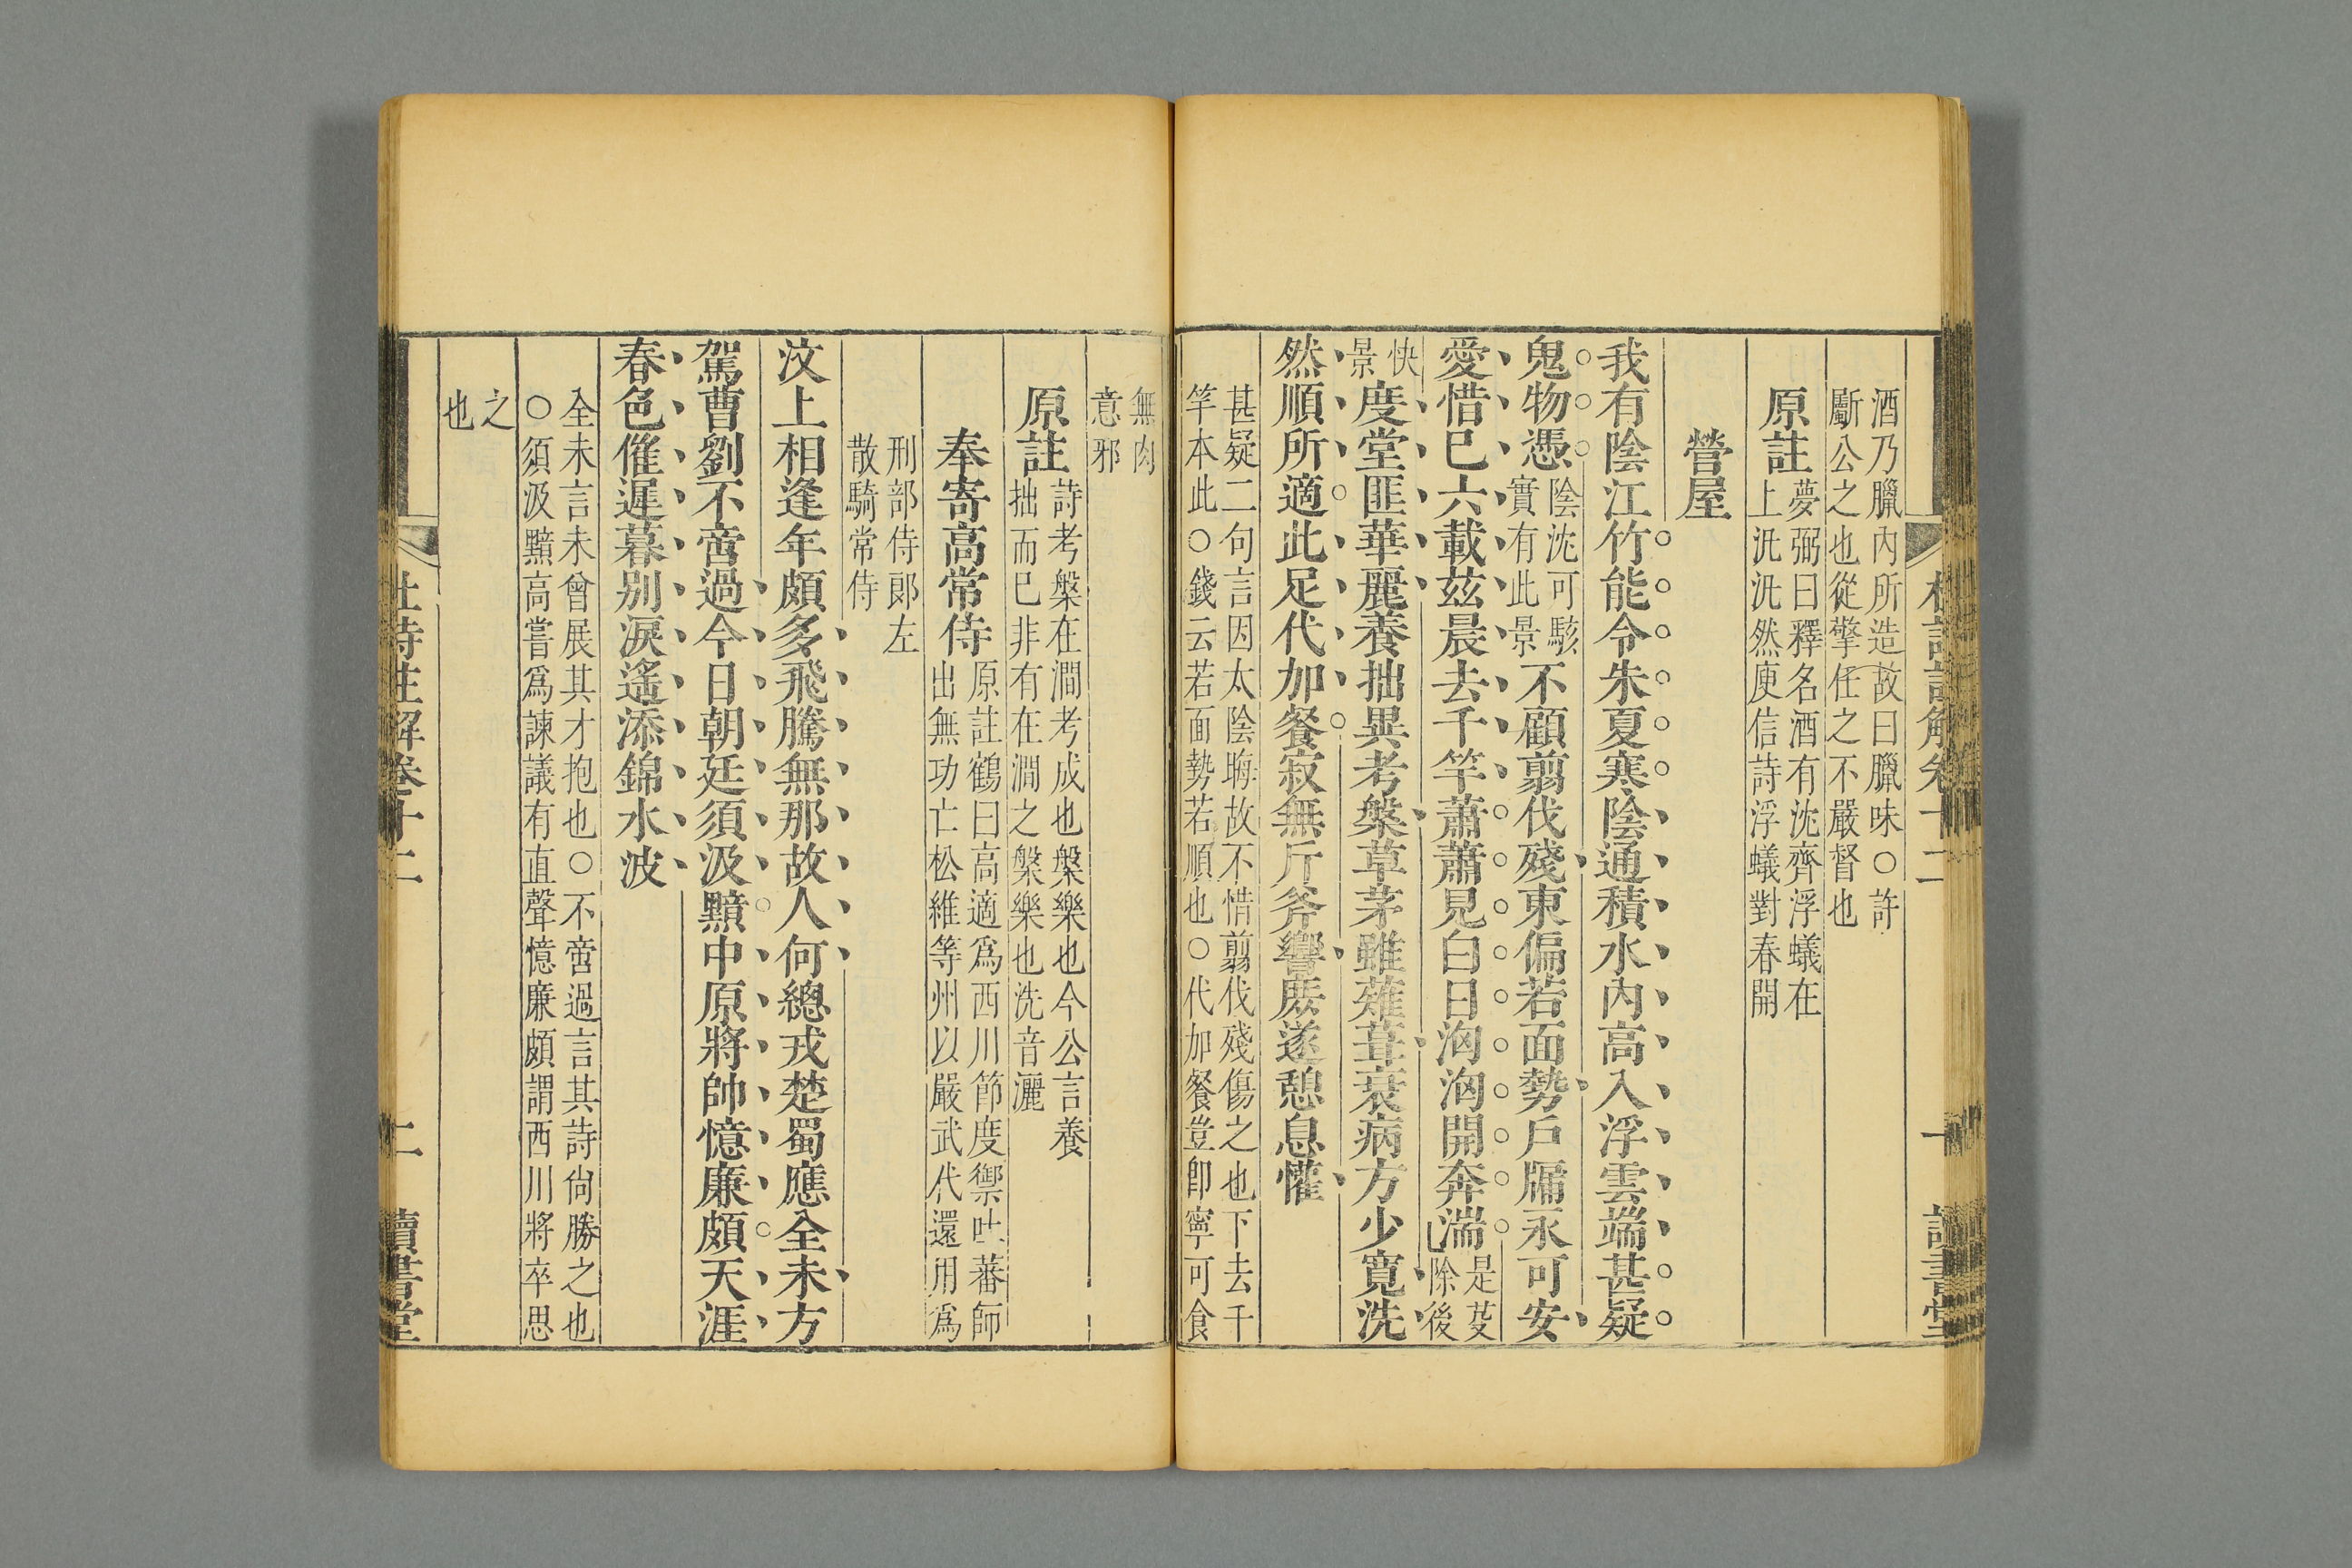 酒乃臘內所造故曰臘味○許
斸公之也從擎任之不嚴督也
原註
夢弼曰釋名酒有沈齊浮蟻在
上汎汎然庾信詩浮蟻對春開
營屋
我有陰江竹能令朱夏寒陰通積水內高入浮雲端甚疑
鬼物憑
陰沈可駭
實有此景
不顧翦伐殘東偏若面勢戶牖永可安
愛惜已六載茲晨去千竿蕭蕭見白日洶洶開奔湍
是芟
除後
快
景
度堂匪華麗養拙異考槃草茅雖薙葺衰病方少寬洗
然順所適此足代加餐寂無斤斧響庶遂憩息懽
甚疑二句言因太陰晦故不惜翦伐殘傷之也下去千
竿本此○錢云若面勢若順也○代加餐豈卽寧可食
無肉
意邪
原註
詩考槃在澗考成也槃樂也今公言養
拙而已非有在澗之槃樂也洗音灑
奉寄高常侍
原註鶴曰高適爲西川節度禦吐蕃師
出無功亡松維等州以嚴武代還用爲
刑部侍郎左
散騎常侍
汶上相逢年頗多飛騰無那故人何總戎楚蜀應全未方
駕曹劉不啻過今日朝廷須汲黯中原將帥憶廉頗天涯
春色催遲暮別淚遙添錦水波
全未言未曾展其才抱也○不啻過言其詩尙勝之也
○須汲黯高嘗爲諫議有直聲憶廉頗謂西川將卒思
之
也
杜詩註解卷十二
二
讀書堂